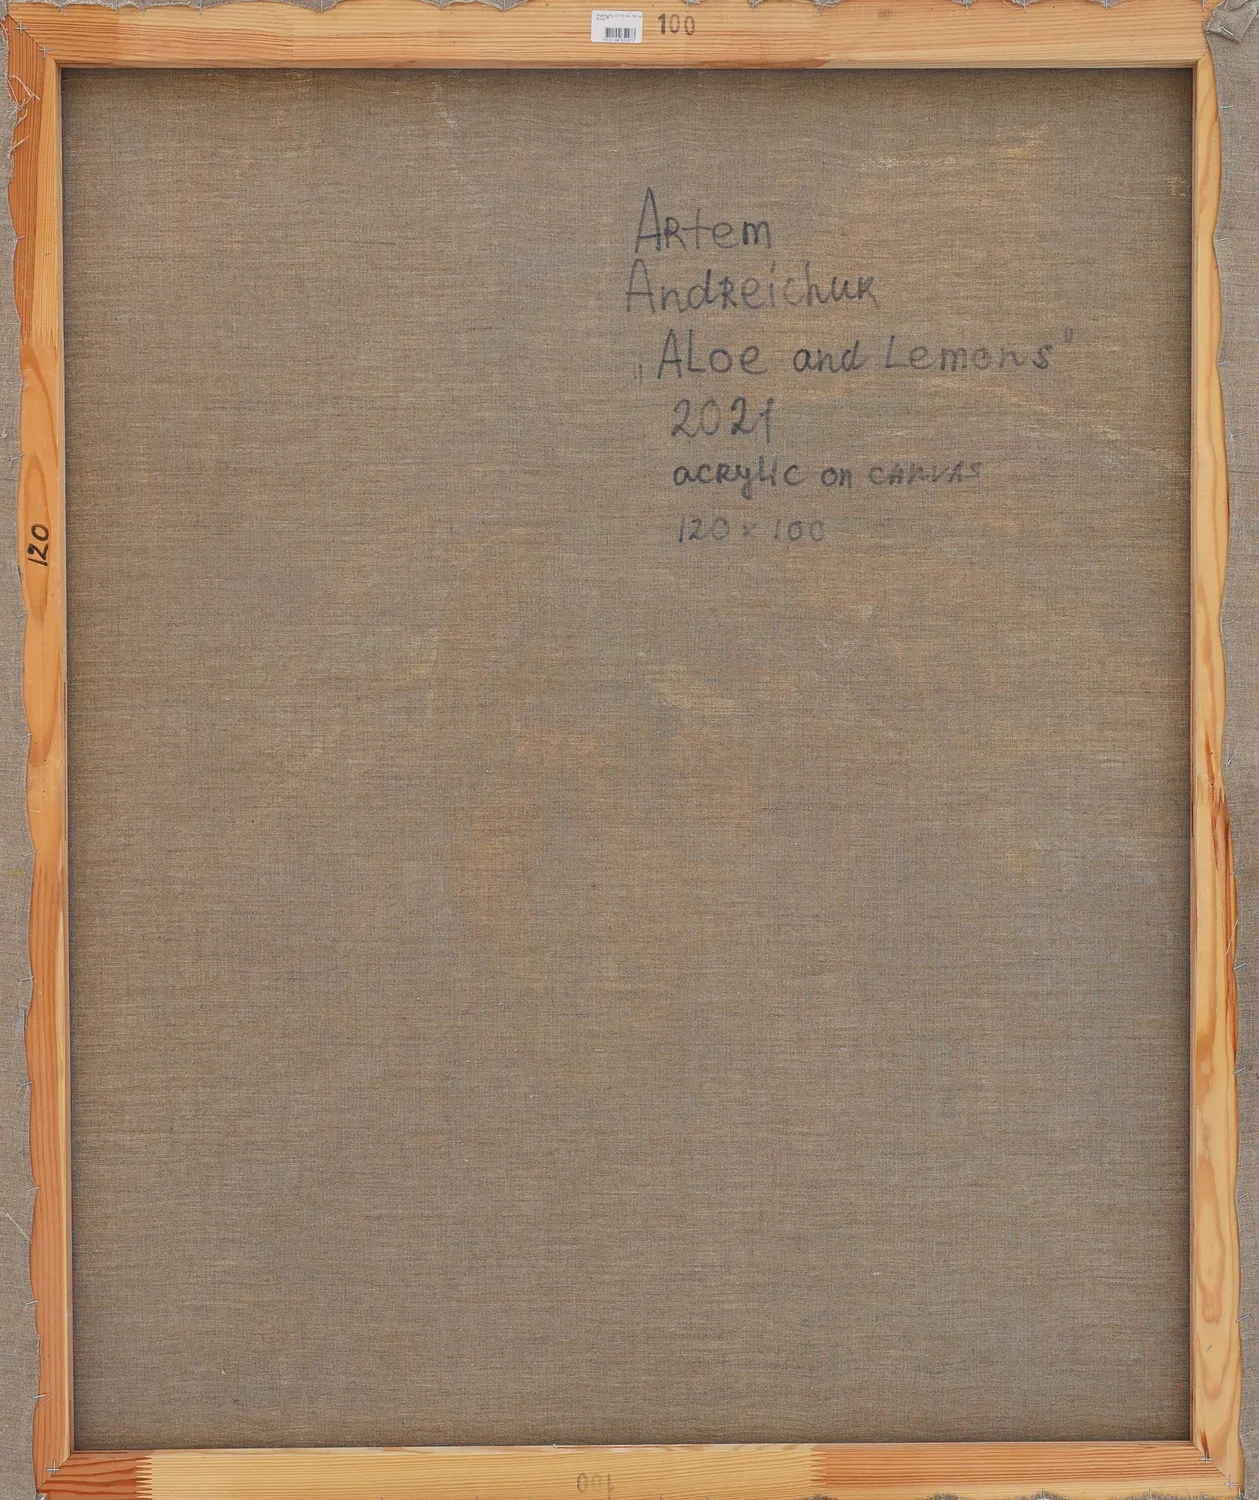 100
Artem
Andreichuk
„Aloe and Lemons"
2021
acrylic on canvas
120 x 100
120
100